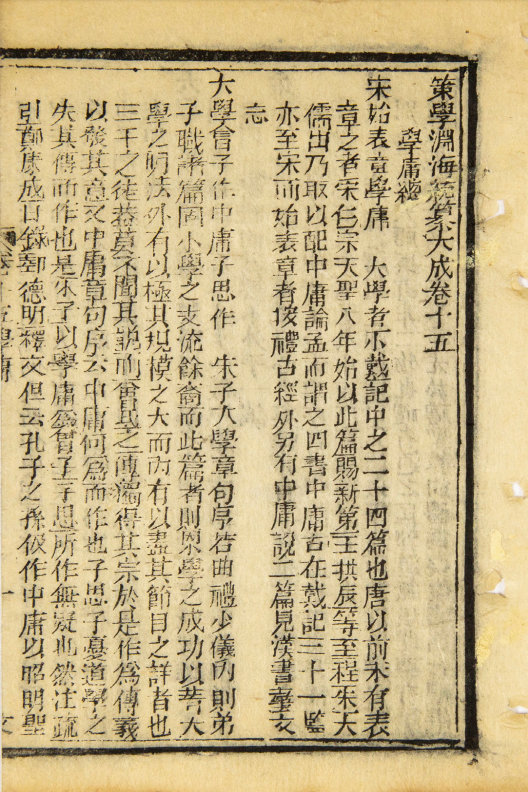 策學淵海統纂大成卷十五
學庸經
宋始表章學庸　大學者小戴記中之二十四篇也唐以前未有表
章之者宋仁宗天聖八年始以此篇賜新第王拱辰等至程朱大
儒出乃取以配中庸論孟而謂之四書中庸古在戴記三十一監
亦至宋而始表章者按禮古經外另有中庸說二篇見漢書藝文
志
大學曾子作中庸子思作　朱子大學章句序若曲禮少儀內則弟
子職諸篇固小學之支流餘裔而此篇者則因小學之成功以著大
學之明法外有以極其規模之大而內有以盡其節目之詳者也
三千之徒蓋莫不聞其說而曾氏之傳獨得其宗於是作為傳義
以發其意又中庸章句序云中庸何為而作也子思子憂道學之
失其傳而作也是朱子以學庸為曾子子思所作無疑也然注疏
引鄭康成目錄鄭德明釋文但云孔子之孫伋作中庸以昭明聖